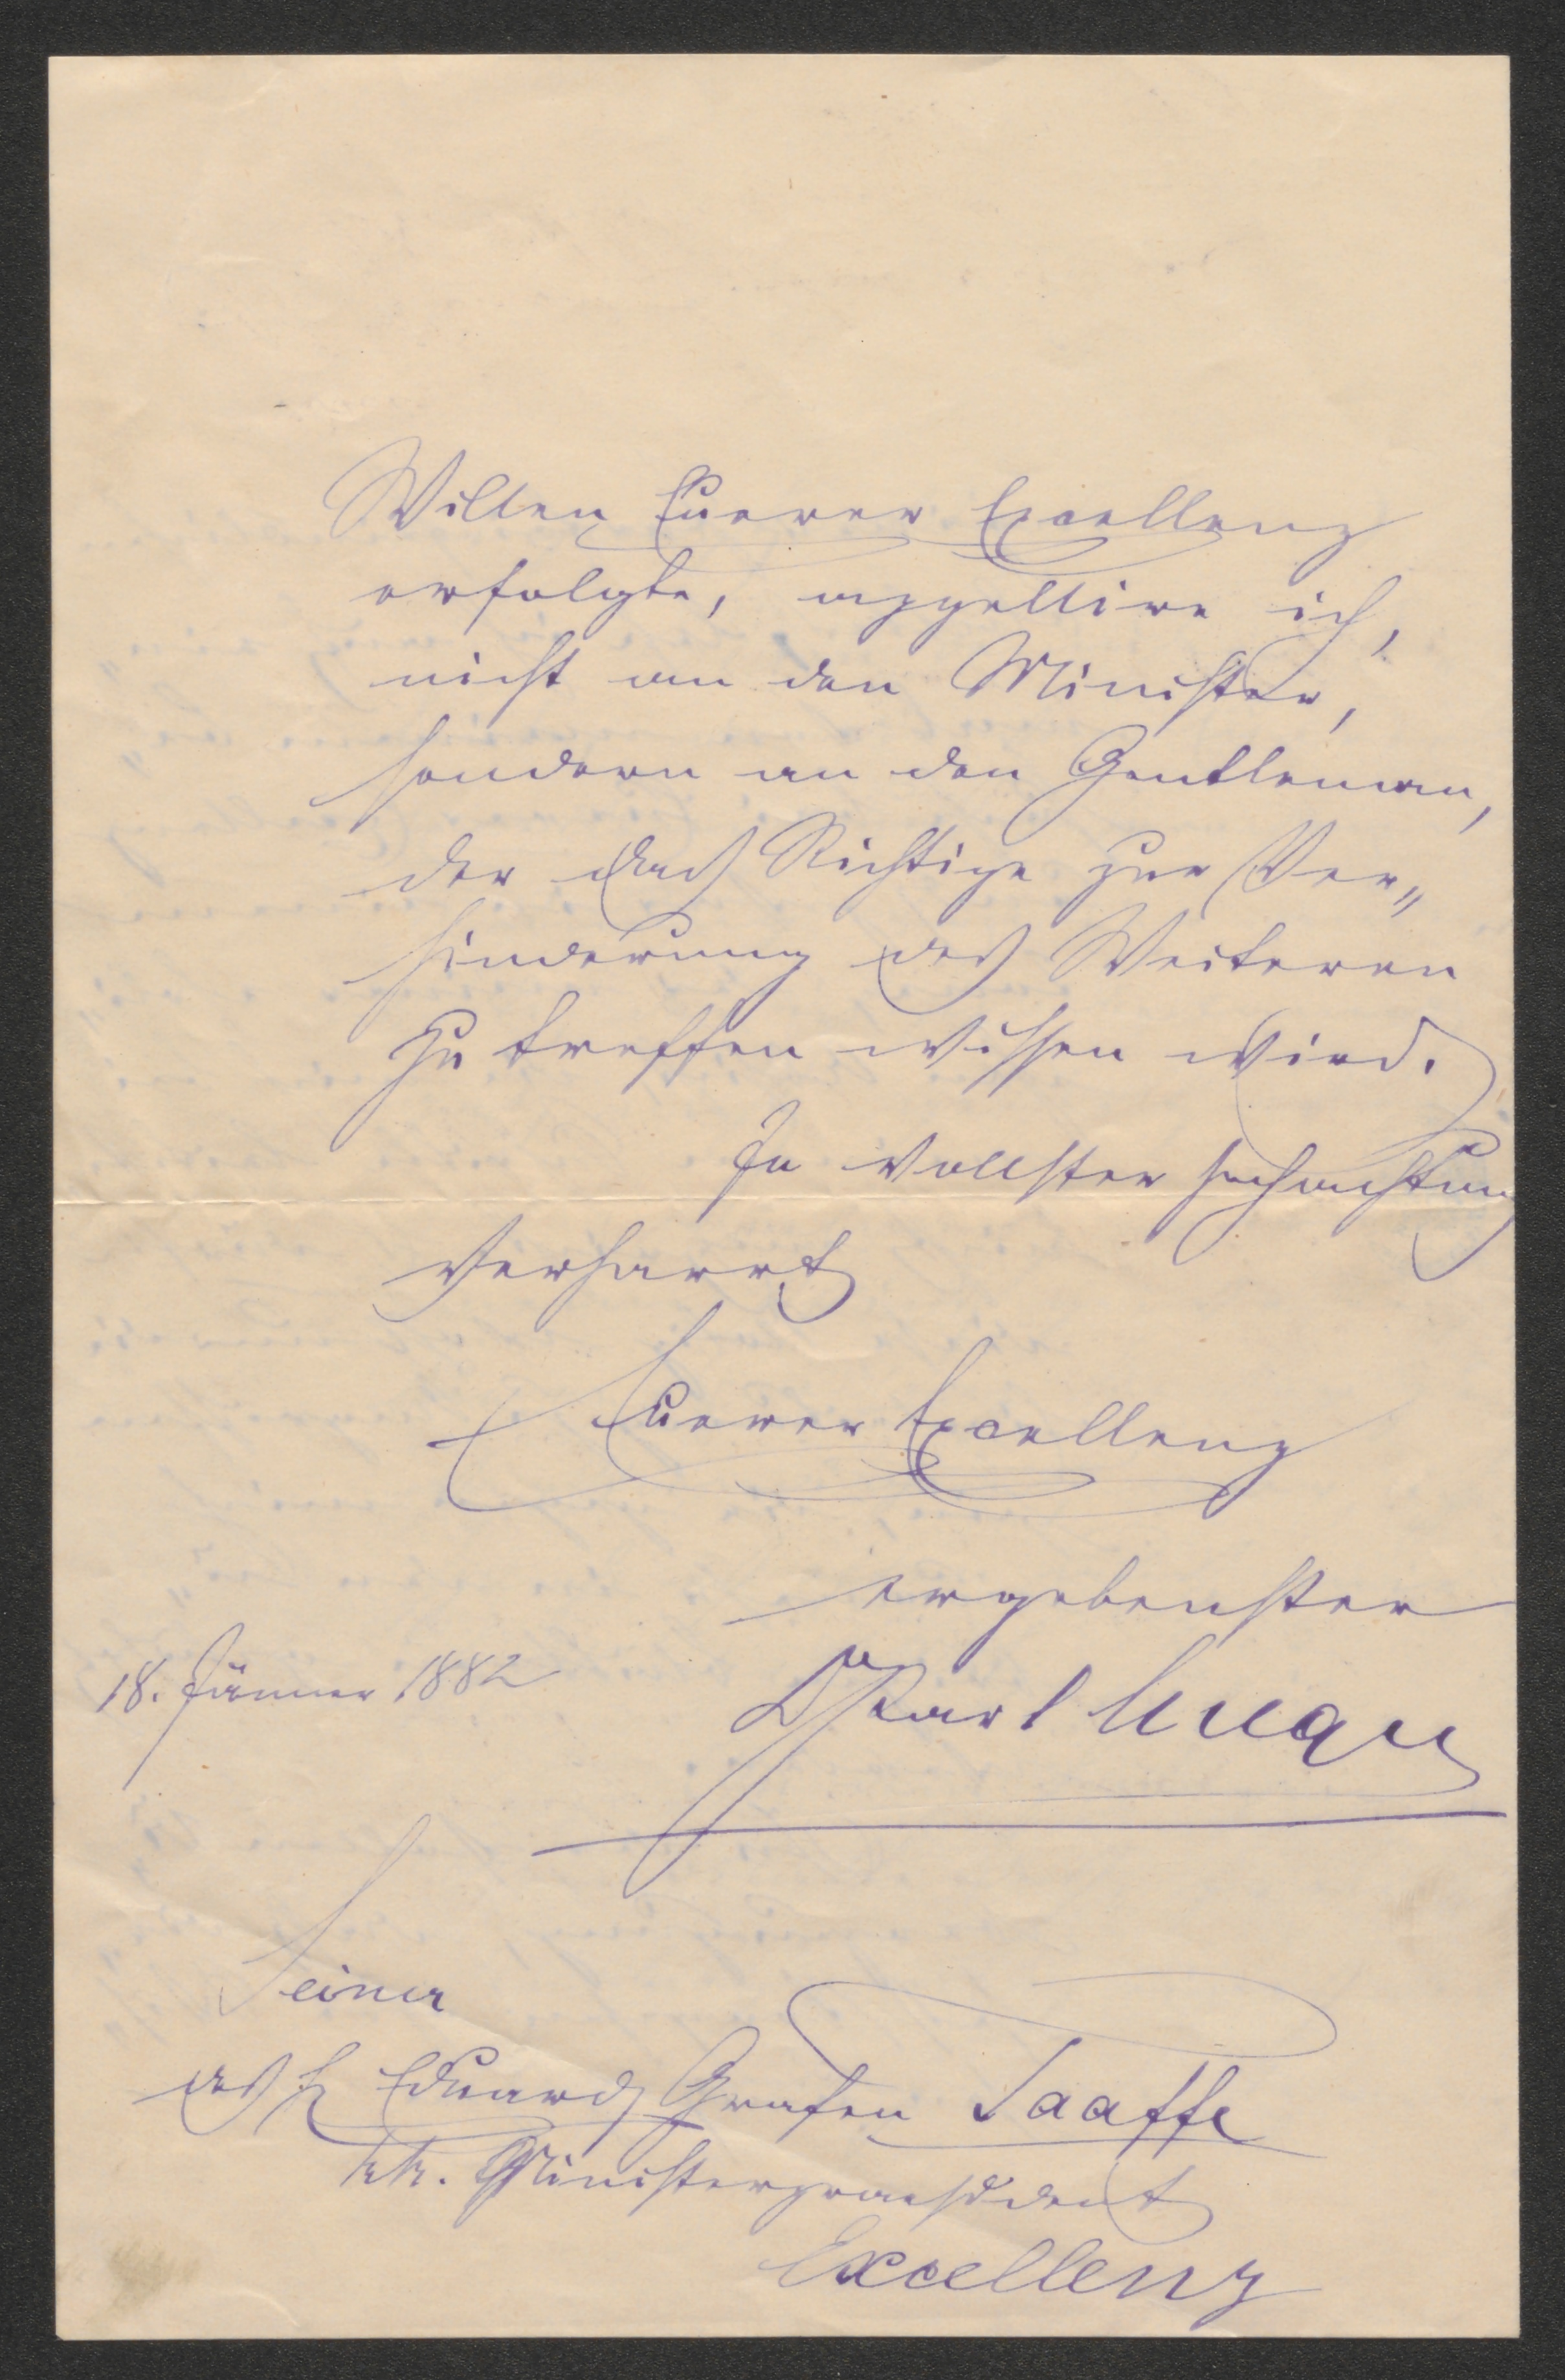 Willen Euerer Excellenz
erfolgte, appellire ich,
nicht an den Minister,
sondern an den Gentleman,
der das Richtige zur Ver„
hinderung des Weiteren
zu treffen wissen wird.
In vollster Hochachtung
verharrt
Euerer Excellenz
ergebenster
18. Jänner 1882
Dr Karl
Seiner
des H Eduard Grafen Taaffe
k.k. Ministerpraesident
Excellenz